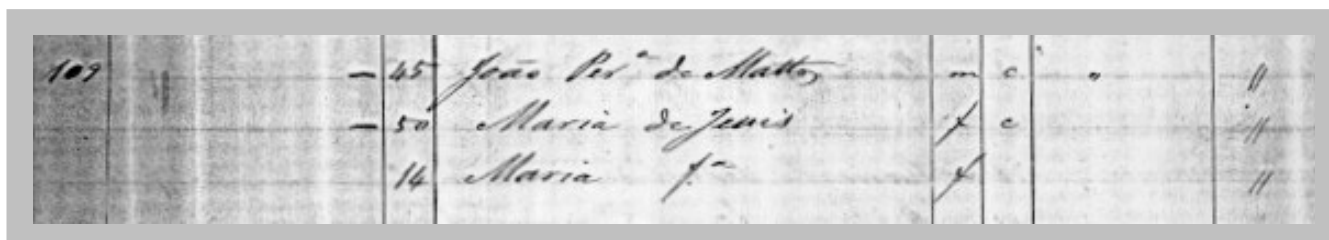 109 — 45 João Per.ª de Mattos m c " //
— 50 Maria de Jesus f c //
14 Maria f.ª f //